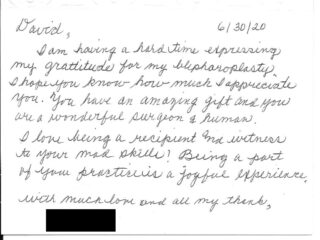 David,
6/30/20
I am having a hard time expressing
my grattitude for my blepharoplasty.
I hope you know how much I appreciate
you. You have an amazing gift and you
are a wonderful surgeon & human.
I love being a recipient and witness
to your mad skills! Being a part
of your practice is a joyful experience.
with much love and all my thanks,